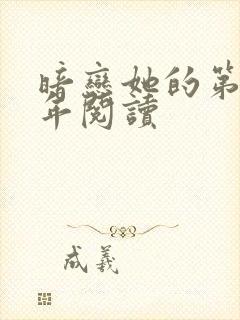 暗戀她的第
年閱讀
成羲